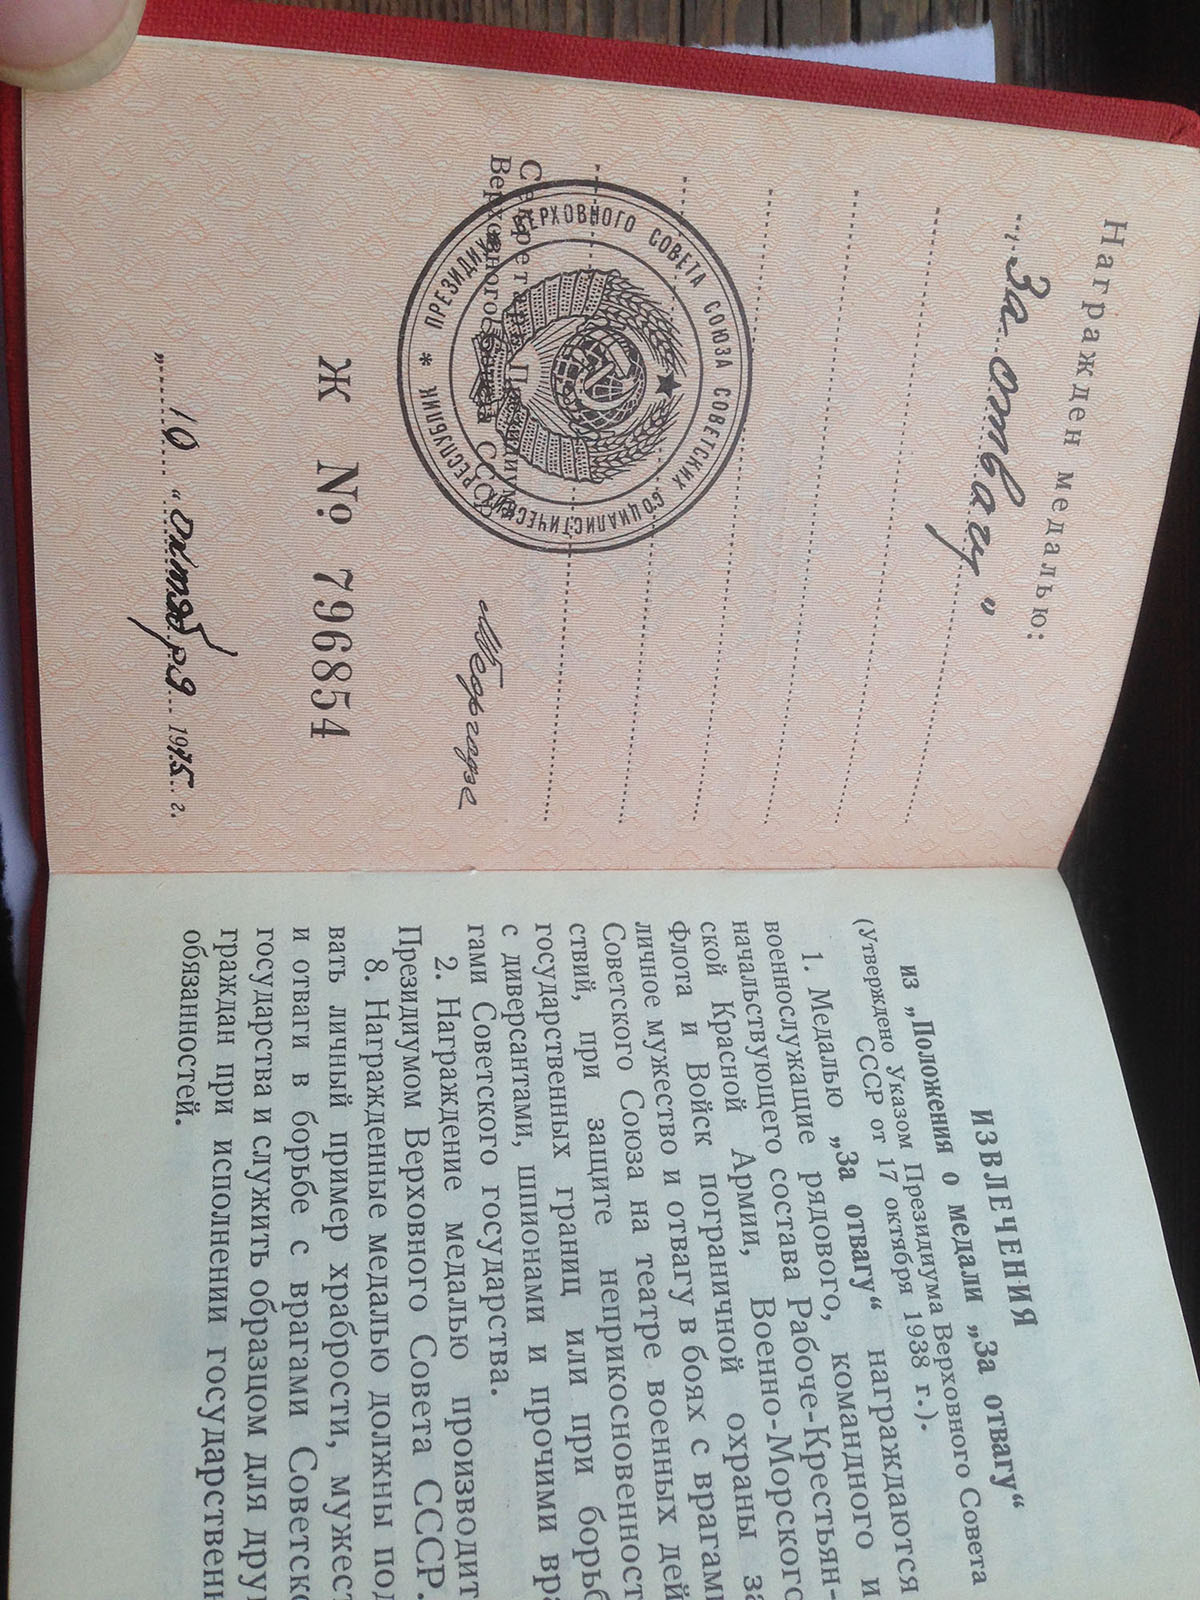 Награжден медалью:
„За отвагу"
Секретарь Президиума
Верховного Совета СССР
ПРЕЗИДИУМ ВЕРХОВНОГО СОВЕТА СОЮЗА СОВЕТСКИХ СОЦИАЛИСТИЧЕСКИХ РЕСПУБЛИК *
Ж № 796854
„ 10 " октября 1975 г.
ИЗВЛЕЧЕНИЯ
из „Положения о медали „За отвагу“
(Утверждено Указом Президиума Верховного Совета
СССР от 17 октября 1938 г.).
1. Медалью „За отвагу“ награждаются
военнослужащие рядового, командного и
начальствующего состава Рабоче-Крестьян-
ской Красной Армии, Военно-Морского
Флота и Войск пограничной охраны за
личное мужество и отвагу в боях с врагами
Советского Союза на театре военных дей
ствий, при защите неприкосновенност
государственных границ или при борьб
с диверсантами, шпионами и прочими вра
гами Советского государства.
2. Награждение медалью производит
Президиумом Верховного Совета СССР.
8. Награжденные медалью должны под
вать личный пример храбрости, мужест
и отваги в борьбе с врагами Советско
государства и служить образцом для дру
граждан при исполнении государственн
обязанностей.